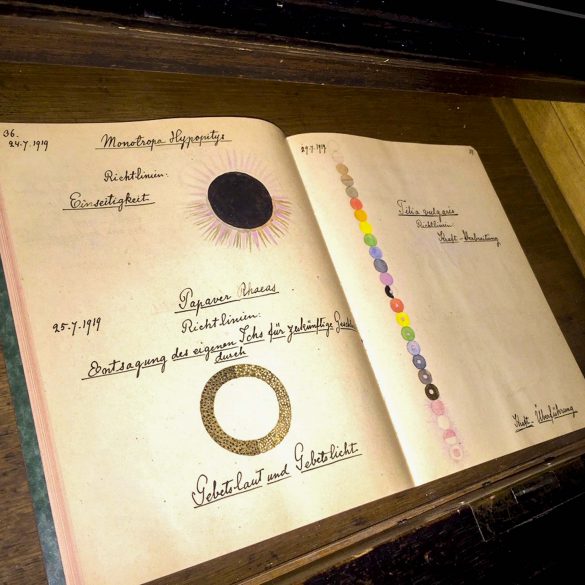 36.
24.7.1919
Monotropa Hypopitys
Richtlinien:
Einseitigkeit
Papaver Rhaeas.
25.7.1919
Richtlinien:
Entsagung des eigenen Ichs für zukünftige
durch
Gebetslaut und Gebetslicht.
29.7.1919
Tilia vulgaris
Richtlinien:
Kraft-Verbreitung
Kraft-Überführung